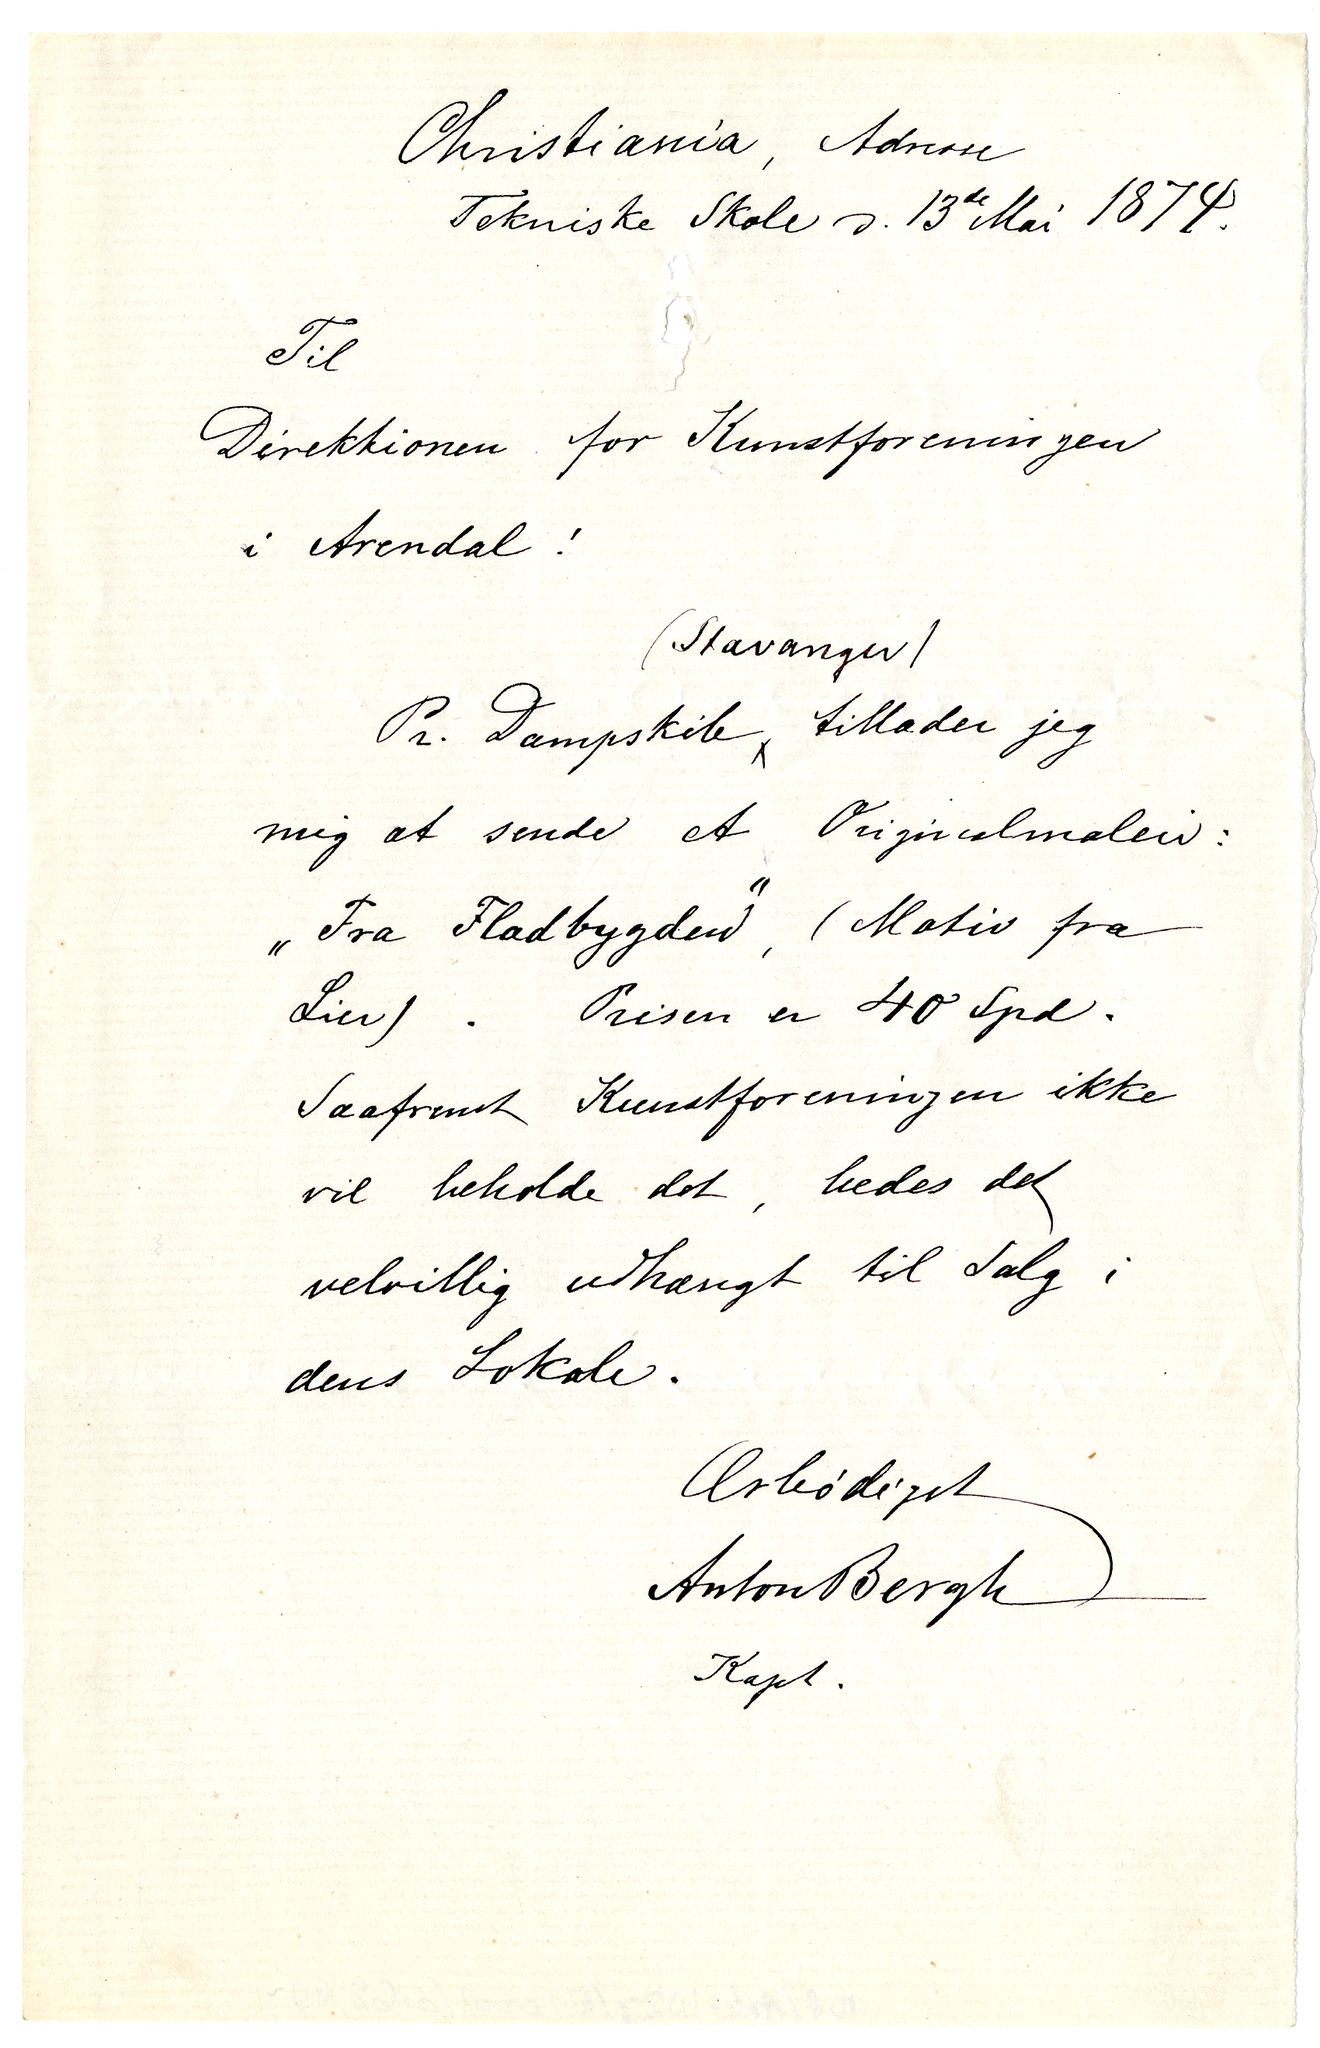 Christiania, Adresse
Tekniske Skole d. 13de Mai 1874.
Til
Direktionen for Kunstforeningen
i Arendal!
(Stavanger)
Pr. Dampskib x tillader jeg
mig at sende et Originalmaleri:
„Fra Fladbygden", (Motiv fra
Lier). Prisen er 40 Spd.
Saafremt Kunstforeningen ikke
vil beholde det, bedes det
velvillig udhængt til Salg i
dens Lokale.
Ærbødigst
Anton Bergh
Kapt.